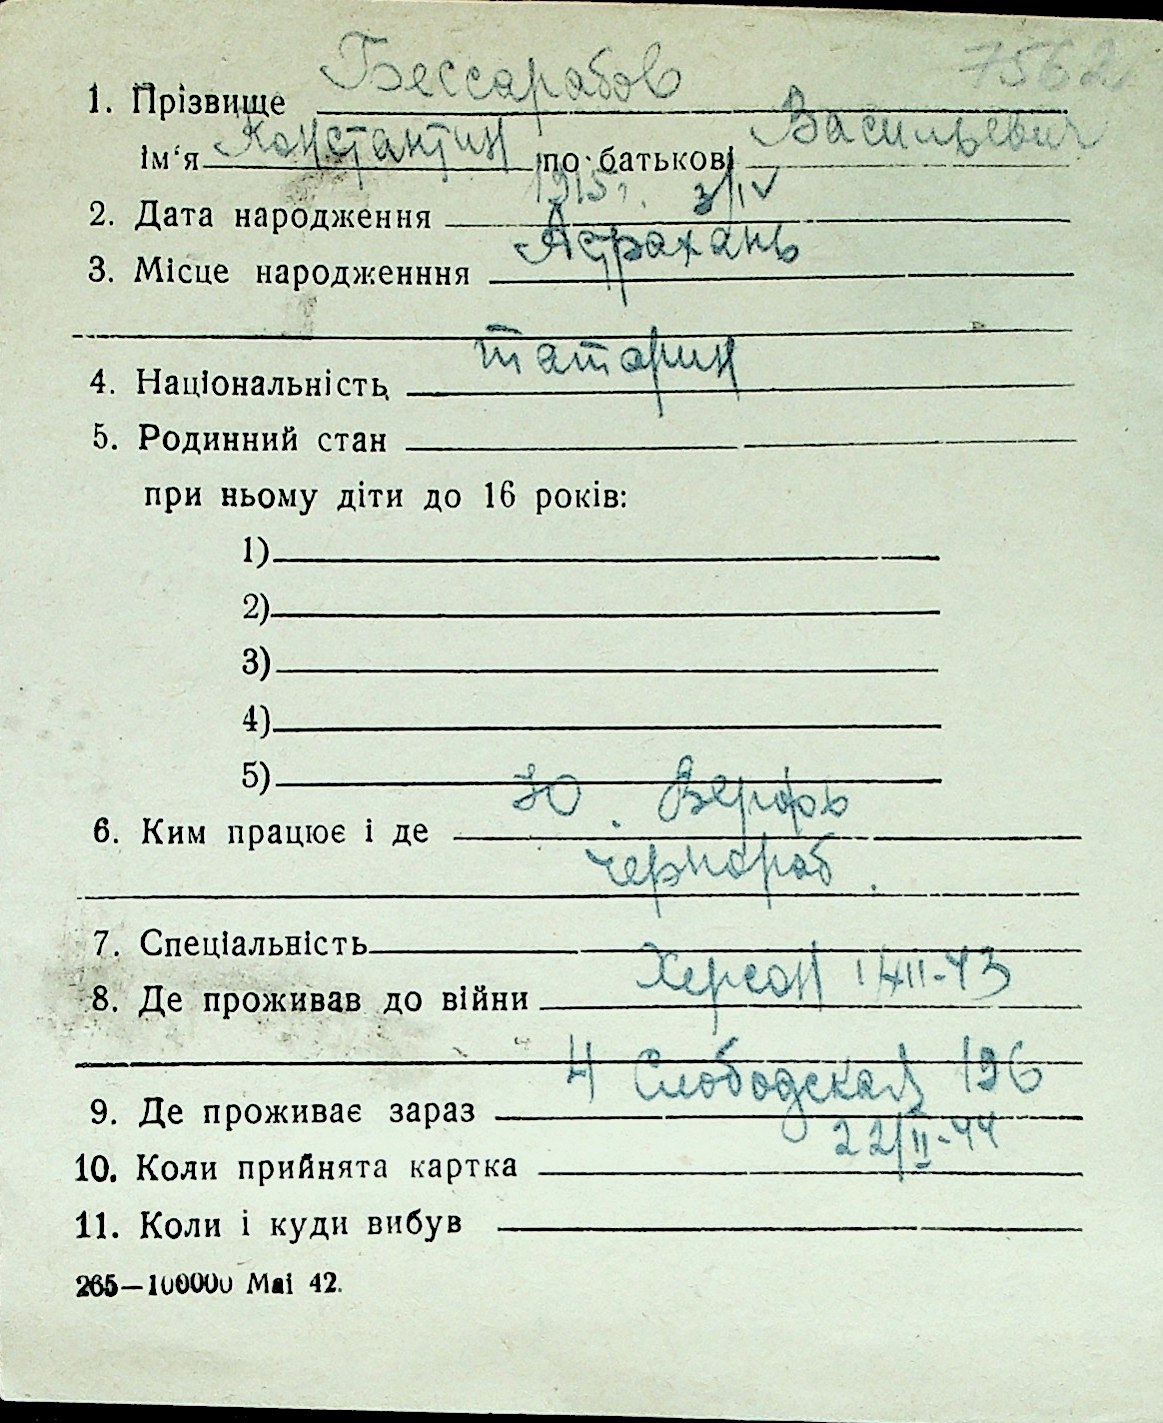 7562
1. Прізвище Бессарабов
ім‘я Константин по батькові Васильевич
2. Дата народження 1915 г. 3/IV
3. Місце народженння Астрахань
4. Національність татарин
5. Родинний стан
при ньому діти до 16 років:
1)
2)
3)
4)
5)
6. Ким працює і де Ю. Верфь
чернораб.
7. Спеціальність
8. Де проживав до війни Херсон
9. Де проживає зараз 4 Слободская 196
10. Коли прийнята картка 22/II-44
11. Коли і куди вибув
265—100000 Mai 42.